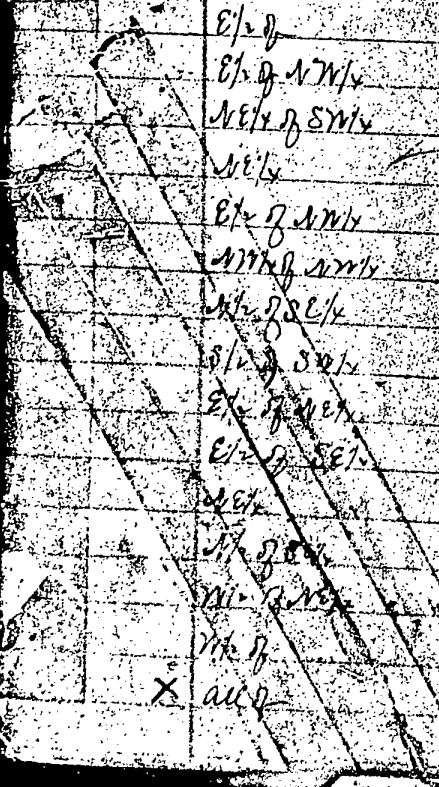 E/2 of
E/2 of NW/4
NE/4 of SW/4
NE/4
E/2 of NW/4
NW/4 of NW/4
N/2 of SE/4
S/2 of SW/4
E/2 of NE/4
E/2 of SE/4
NE/4
N/2 of
W/2 of NE/4
W/2 of
X all of